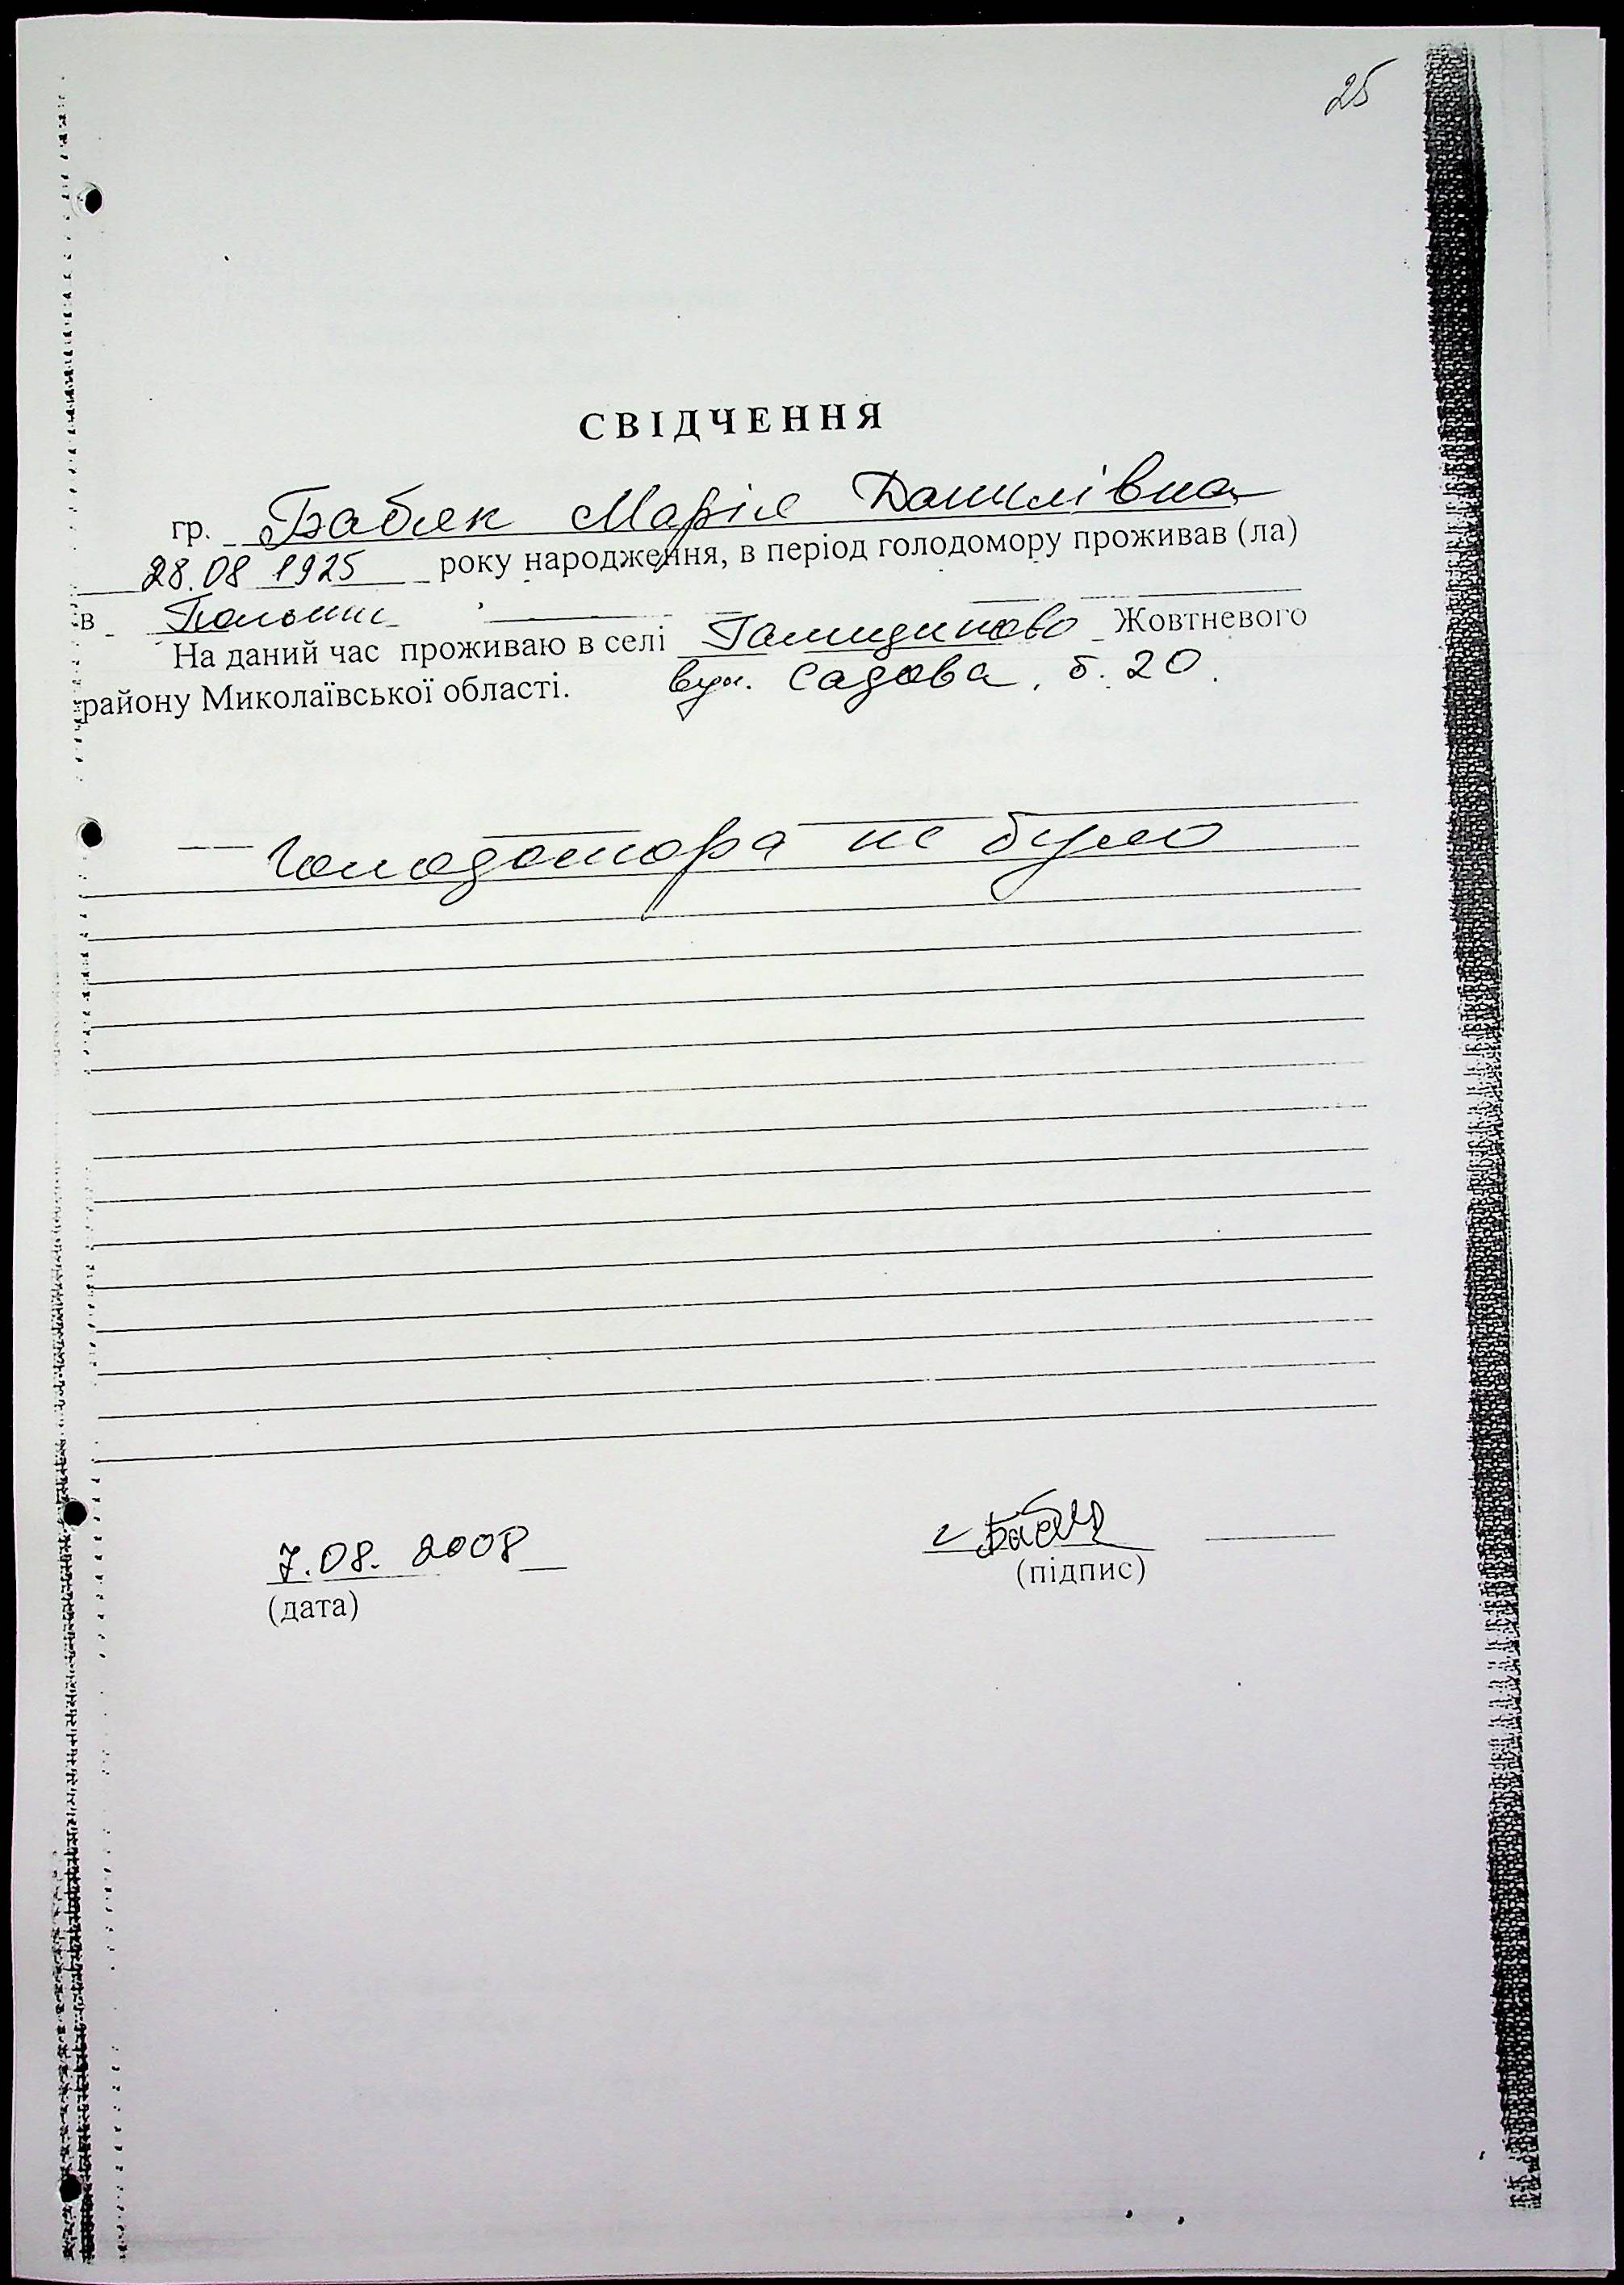 25
СВІДЧЕННЯ
гр. Бабяк Марія Данилівна
28.08 1925 року народження, в період голодомору проживав (ла)
в Польши
На даний час проживаю в селі Галициново Жовтневого
району Миколаївської області. вул. Садова, б. 20.
Голодомора не було
7.08. 2008
(дата)
(підпис)